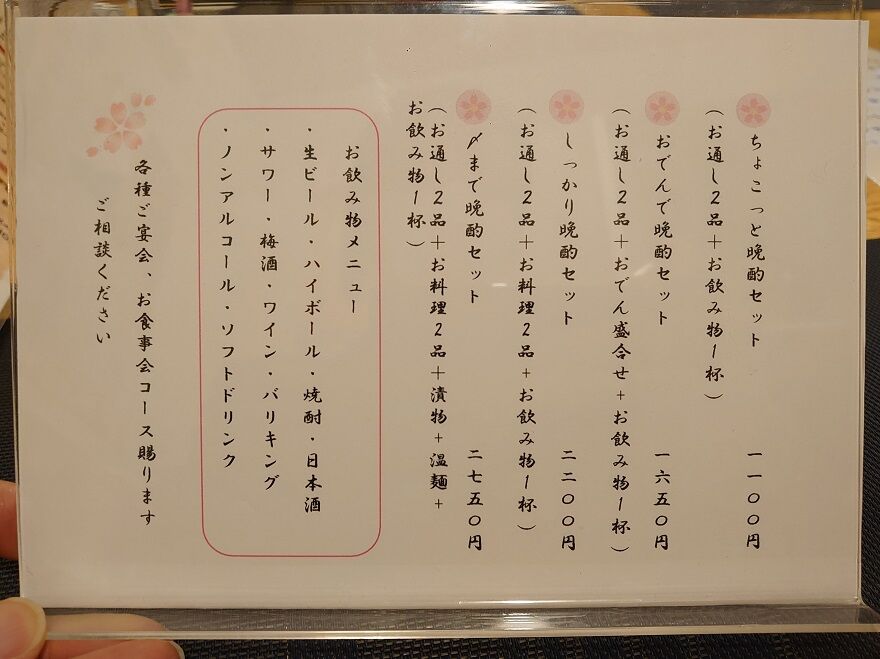 ちょこっと晩酌セット 一一〇〇円
（お通し2品＋お飲み物1杯）
おでんで晩酌セット 一六五〇円
（お通し2品＋おでん盛合せ＋お飲み物1杯）
しっかり晩酌セット 二二〇〇円
（お通し2品＋お料理2品＋お飲み物1杯）
〆まで晩酌セット 二七五〇円
（お通し2品＋お料理2品＋漬物＋温麺＋
お飲み物1杯）
お飲み物メニュー
・生ビール・ハイボール・焼酎・日本酒
・サワー・梅酒・ワイン・バリキング
・ノンアルコール・ソフトドリンク
各種ご宴会、お食事会コース賜ります
ご相談ください